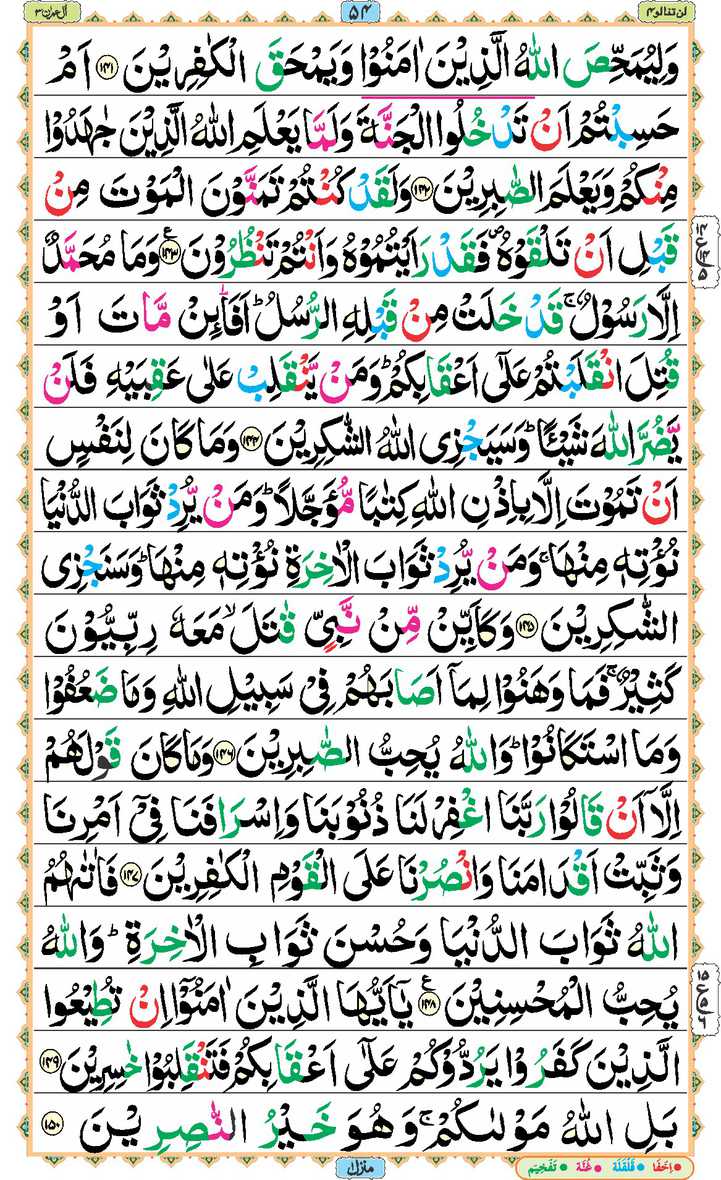 لن تنالوا ۴
۵۴
اٰل عمرٰن ۳
وَلِیُمَحِّصَ اللّٰهُ الَّذِیْنَ اٰمَنُوْا وَیَمْحَقَ الْكٰفِرِیْنَ ﴿۱۴۱﴾ اَمْ
حَسِبْتُمْ اَنْ تَدْخُلُوا الْجَنَّةَ وَلَمَّا یَعْلَمِ اللّٰهُ الَّذِیْنَ جٰهَدُوْا
مِنْكُمْ وَیَعْلَمَ الصّٰبِرِیْنَ ﴿۱۴۲﴾ وَلَقَدْ كُنْتُمْ تَمَنَّوْنَ الْمَوْتَ مِنْ
قَبْلِ اَنْ تَلْقَوْهُ ۪ فَقَدْ رَاَیْتُمُوْهُ وَاَنْتُمْ تَنْظُرُوْنَ ﴿۱۴۳﴾ ع وَمَا مُحَمَّدٌ
اِلَّا رَسُوْلٌ ۚ قَدْ خَلَتْ مِنْ قَبْلِهِ الرُّسُلُ ؕ اَفَا۠ئِنْ مَّاتَ اَوْ
قُتِلَ انْقَلَبْتُمْ عَلٰۤی اَعْقَابِكُمْ ؕ وَمَنْ یَّنْقَلِبْ عَلٰی عَقِبَیْهِ فَلَنْ
یَّضُرَّ اللّٰهَ شَیْـًٔا ؕ وَسَیَجْزِی اللّٰهُ الشّٰكِرِیْنَ ﴿۱۴۴﴾ وَمَا كَانَ لِنَفْسٍ
اَنْ تَمُوْتَ اِلَّا بِاِذْنِ اللّٰهِ كِتٰبًا مُّؤَجَّلًا ؕ وَمَنْ یُّرِدْ ثَوَابَ الدُّنْیَا
نُؤْتِهٖ مِنْهَا ۚ وَمَنْ یُّرِدْ ثَوَابَ الْاٰخِرَةِ نُؤْتِهٖ مِنْهَا ؕ وَسَنَجْزِی
الشّٰكِرِیْنَ ﴿۱۴۵﴾ وَكَاَیِّنْ مِّنْ نَّبِیٍّ قٰتَلَ ۙ مَعَهٗ رِبِّیُّوْنَ
كَثِیْرٌ ۚ فَمَا وَهَنُوْا لِمَاۤ اَصَابَهُمْ فِیْ سَبِیْلِ اللّٰهِ وَمَا ضَعُفُوْا
وَمَا اسْتَكَانُوْا ؕ وَاللّٰهُ یُحِبُّ الصّٰبِرِیْنَ ﴿۱۴۶﴾ وَمَا كَانَ قَوْلَهُمْ
اِلَّاۤ اَنْ قَالُوْا رَبَّنَا اغْفِرْ لَنَا ذُنُوْبَنَا وَاِسْرَافَنَا فِیْۤ اَمْرِنَا
وَثَبِّتْ اَقْدَامَنَا وَانْصُرْنَا عَلَی الْقَوْمِ الْكٰفِرِیْنَ ﴿۱۴۷﴾ فَاٰتٰىهُمُ
اللّٰهُ ثَوَابَ الدُّنْیَا وَحُسْنَ ثَوَابِ الْاٰخِرَةِ ؕ وَاللّٰهُ
یُحِبُّ الْمُحْسِنِیْنَ ﴿۱۴۸﴾ ع یٰۤاَیُّهَا الَّذِیْنَ اٰمَنُوْۤا اِنْ تُطِیْعُوا
الَّذِیْنَ كَفَرُوْا یَرُدُّوْكُمْ عَلٰۤی اَعْقَابِكُمْ فَتَنْقَلِبُوْا خٰسِرِیْنَ ﴿۱۴۹﴾
بَلِ اللّٰهُ مَوْلٰىكُمْ ۚ وَهُوَ خَیْرُ النّٰصِرِیْنَ ﴿۱۵۰﴾
منزل
اِخْفَا • قَلْقَلَة • غُنَّة • تَفْخِیْم